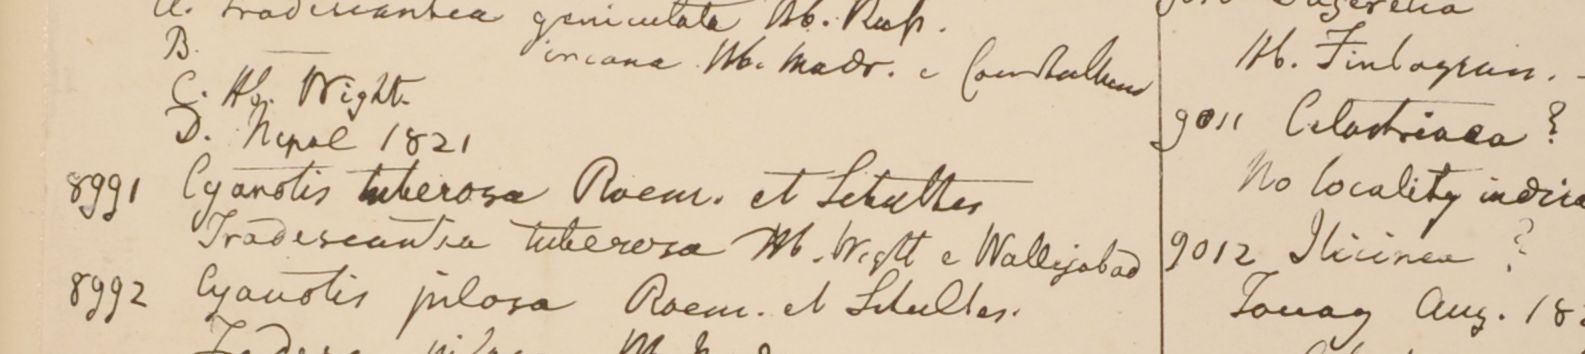 A. Tradescantia geniculata Hb. Russ.
B. incana Hb. Madr. e
C. Hb. Wight.
D. Nepal 1821
8991 Cyanotis tuberosa Roem. et Schultes
Tradescantia tuberosa Hb. Wight e Wallijabad
8992 Cyanotis pilosa Roem. et Schultes.
Hb. Finlayson.
9011 Celastrinea?
No locality
9012 Ilicinea?
Tavoy Aug. 18